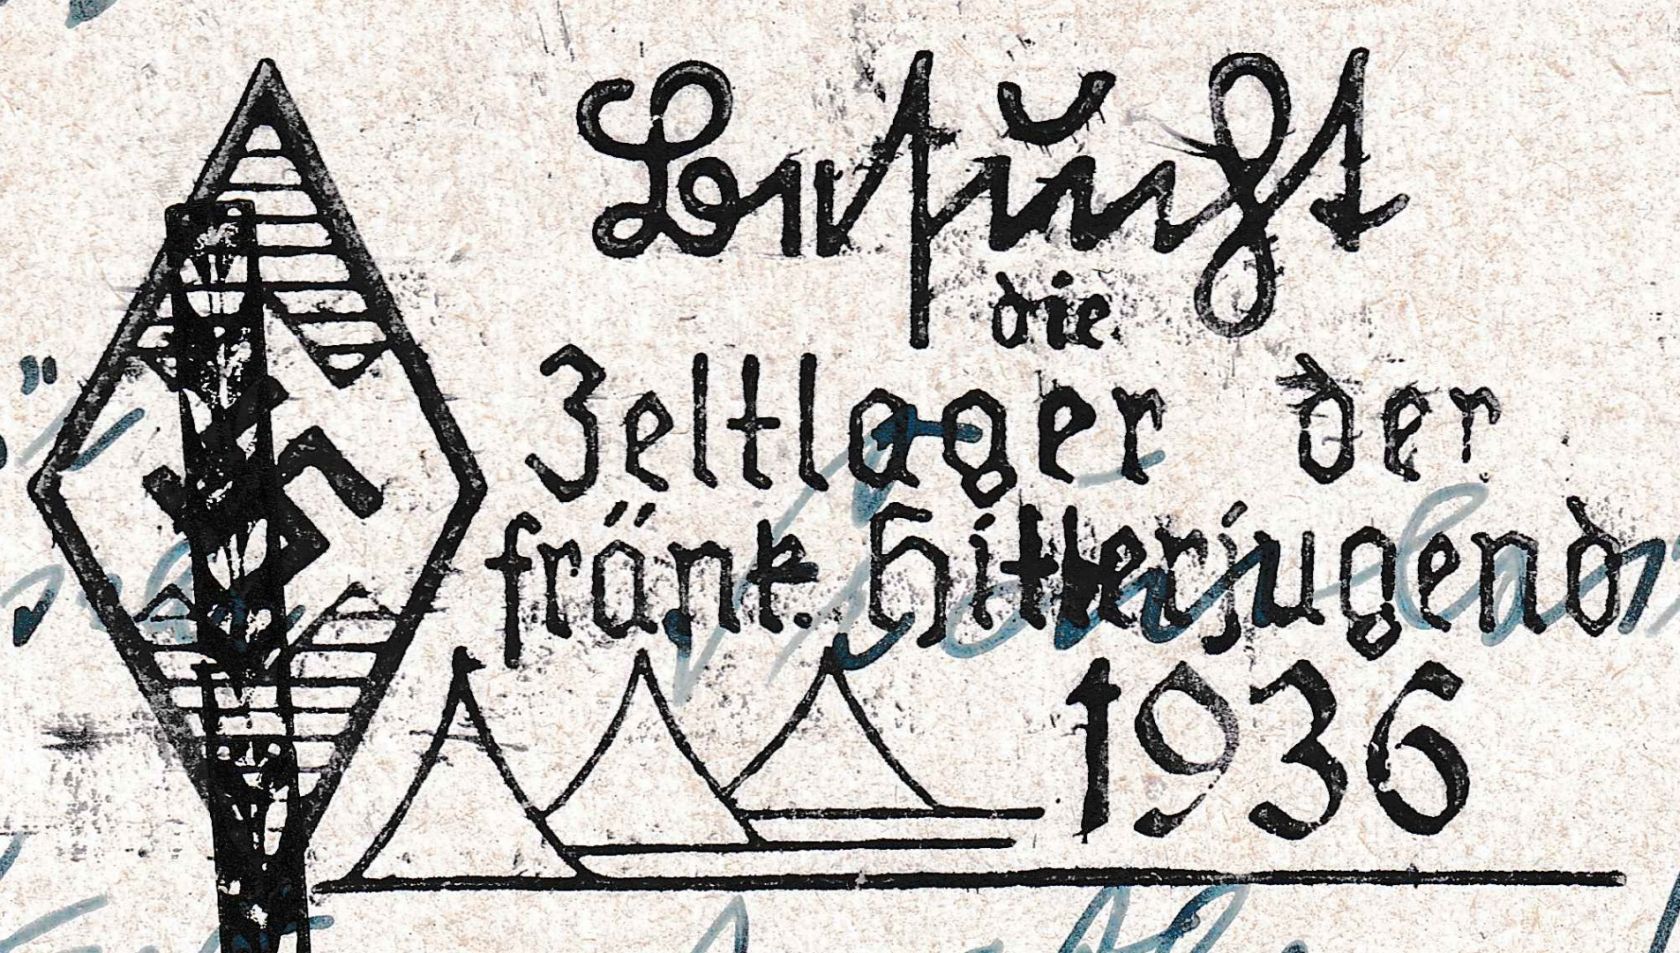 Besucht
die
Zeltlager der
fränk. Hitlerjugend
1936